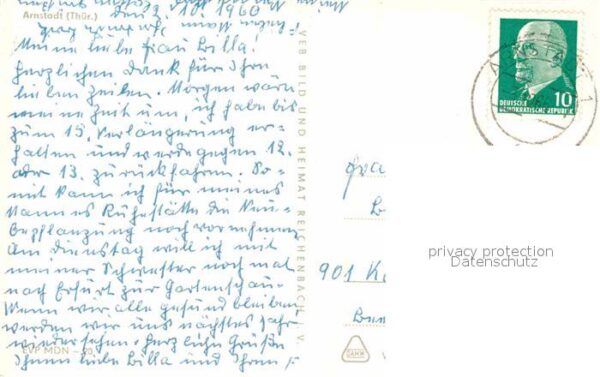 Arnstadt (Thür.)
den 2. 10. 1960
Meine liebe Frau Billa.
Herzlichen Dank für Ihre
lieben Zeilen. Morgen wäre
meine Zeit um, ich habe bis
zum 15. Verlängerung er-
halten und werde gegen 12.
oder 13. zurückfahren. So-
mit kann ich für meines
Mannes Ruhestätte die Neu-
bepflanzung noch vornehmen
Am Dienstag will ich mit
meiner Schwester noch mal
nach Erfurt zur Gartenschau.
Wenn wir alle gesund bleiben
werden wir uns nächstes Jahr
wiedersehen. Herzliche Grüße
Ihnen liebe Billa und Ihrem
EVP MDN –.20
VEB BILD UND HEIMAT REICHENBACH I. V.
10
DEUTSCHE
DEMOKRATISCHE REPUBLIK
privacy protection
Datenschutz
901